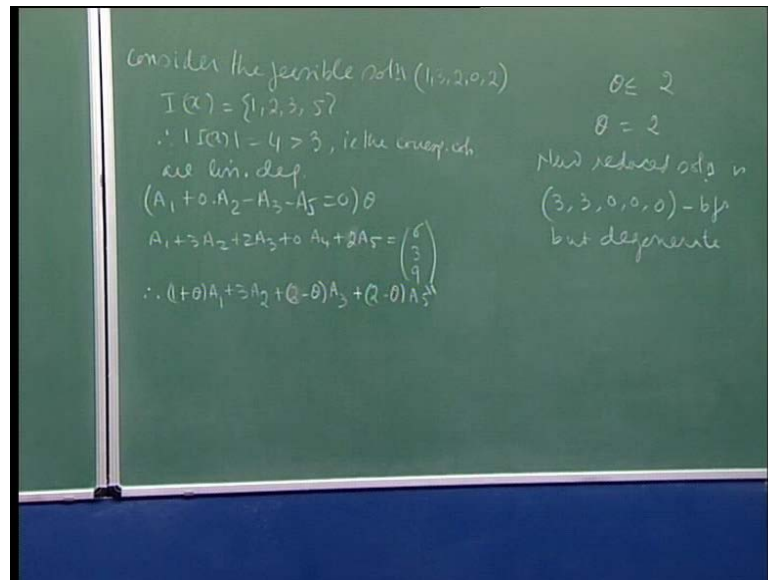 Consider the feasible soln (1,3,2,0,2)
I(x) = {1,2,3,5}
∴ |I(x)| = 4 > 3, ie the corresp. cols
are lin. dep.
(A₁+0.A₂-A₃-A₅=0)θ
A₁+3A₂+2A₃+0A₄+2A₅=(6 3 9)
∴ (1+θ)A₁+3A₂+(2-θ)A₃+(2-θ)A₅"
θ≤ 2
θ = 2
New reduced soln is
(3,3,0,0,0) - bfs
but degenerate